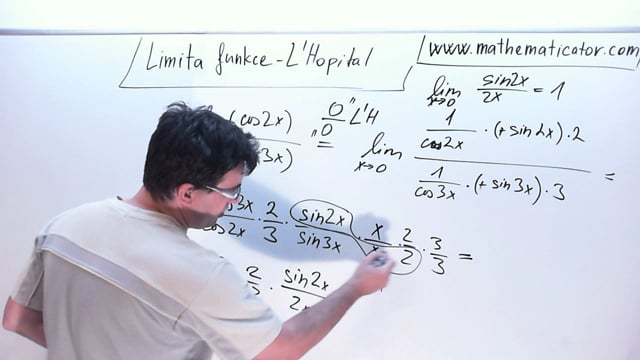 Limita funkce - L'Hopital
www.mathematicator.com
lim x→0 sin2x/2x = 1
(cos2x) "0/0" L'H
3x) = lim x→0
1/cos2x · (+sin2x) · 2
1/cos3x · (+sin3x) · 3 =
cos3x/cos2x · 2/3 · sin2x/sin3x · x/x · 2/2 · 3/3 =
2/3 · sin2x/2x